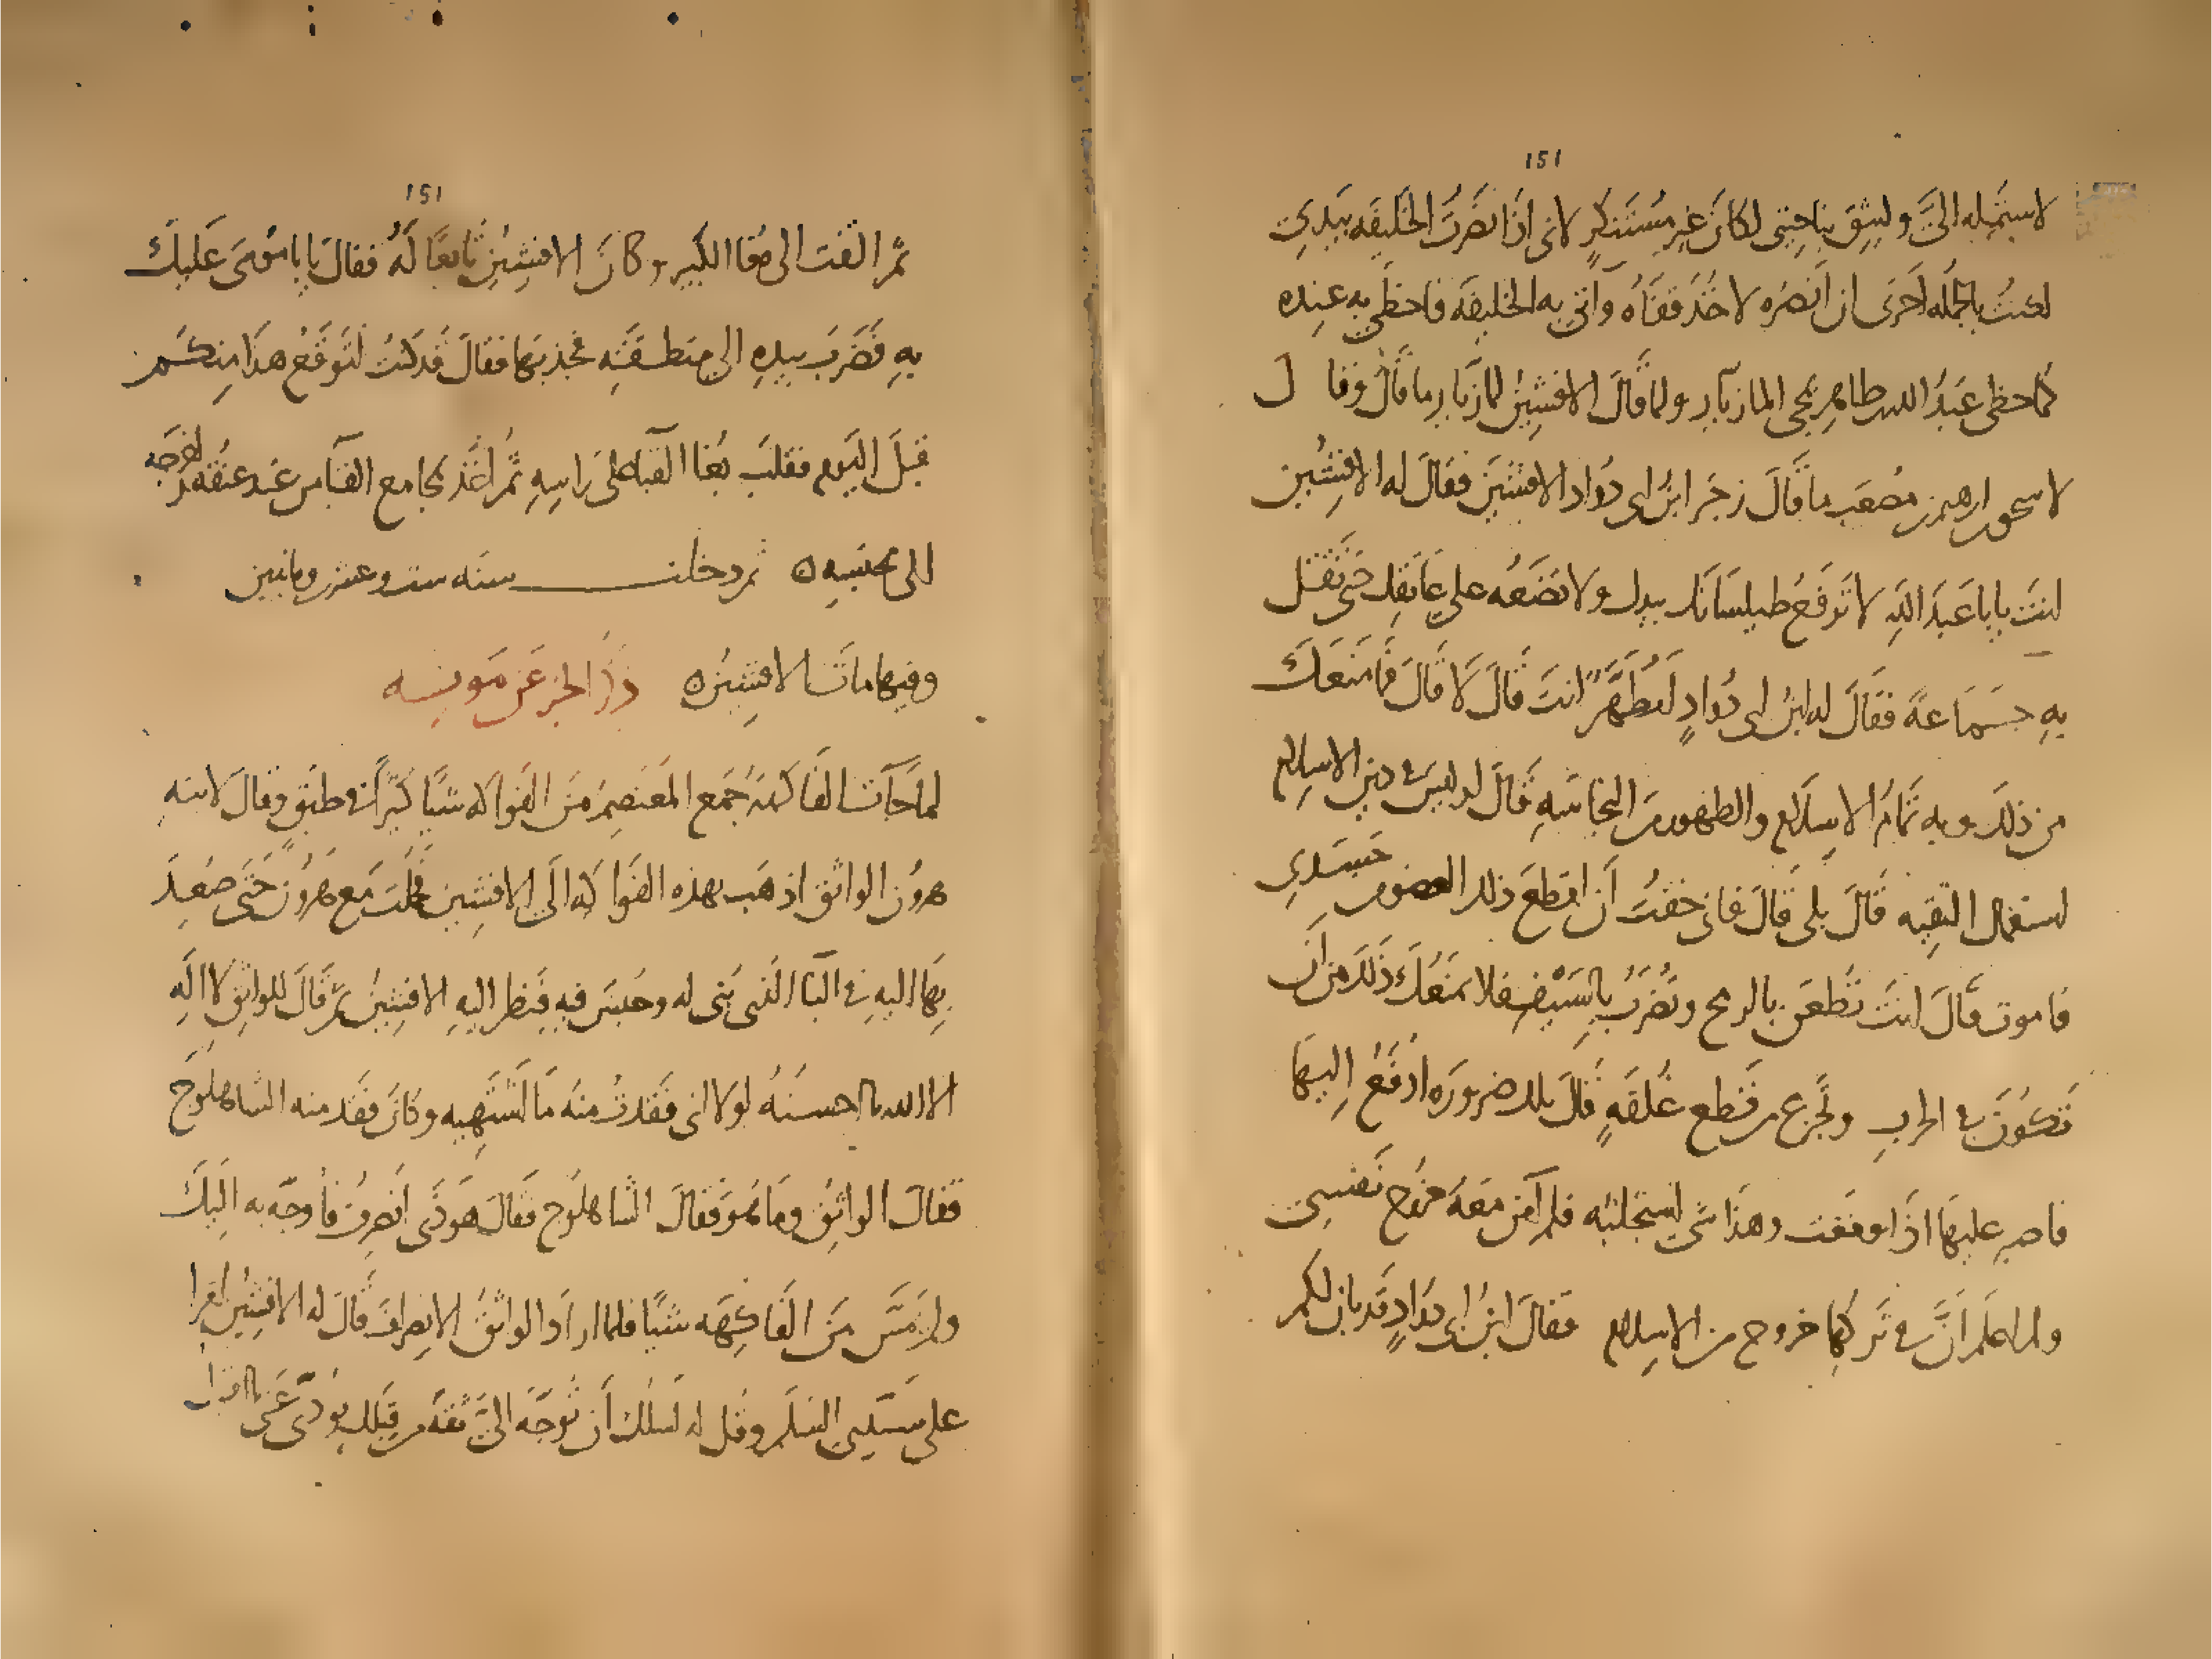 ١٥١
لاستميله الىَّ وليثق بناحيتى لكان غير مستنكر لانى اذا نصرت الخليفه بيدى
لكنت بالحيله احرى ان انصره لاخذ قفاه واتى به الخليفه فاحظى به عنده
كما حظى عبد الله بن طاهر بمجى المازيار ولما قال الافشين لمازيار ما قال وقال
لاسحق بن ابرهيم بن مصعب ما قال زجر ابن ابى دواد الافشين فقال له الافشين
انت يابا عبد الله لا ترفع طيلسانك بيدك ولا تضعه على عاتقك حتى تقتل
به جماعة فقال له ابن ابى دواد امطهر انت قال لا قال فما منعك
من ذلك وبه تمام الاسلام والطهور من النجاسه قال اوليس فى دين الاسلام
استعمال التقيه قال بلى قال فانى خفت ان اقطع ذلك العضو من جسدى
فاموت قال انت تطعن بالرمح وتضرب بالسيف فلا يمنعك ذلك من ان
تكون فى الحرب وتجزع من قطع غلفة قال تلك ضروره ادفع اليها
فاصبر عليها اذا وقعت وهذا شى استجلبته فلم آمن معه خروج نفسى
ولم اعلم ان فى تركها خروج من الاسلام فقال ابن ابى دواد قد بان لكم
١٥١
ثم التفت الى بغا الكبير وكان الافشين تابعا له فقال يابا موسى عليك
به فضرب بيده الى منطقته فجذبها فقال قد كنت اتوقع هذا منكم
قبل اليوم فقلب بغا القبا على راسه ثم اخذ بمجامع القبا من عند عنقه ثم اخرجه
الى محبسه ٥ ثم دخلت سنه ست وعشرين وماتيين
وفيها مات الافشين ٥ ذكر الخبر عن موته
لما جآت الفاكهة جمع المعتصم من الفواكه شيا كثيرا فى طبق وقال لابنه
هرون الواثق اذهب بهذه الفواكه الى الافشين فحملت مع هرون حتى صعد
بها اليه فى البنا الذى بنى له وحبس فيه فنظر اليه الافشين ثم قال للواثق لا اله
الا الله ما احسنه لولا انى فقدت منه ما اشتهيه وكان فقد منه الشاهلوج
فقال الواثق وما هو فقال الشاهلوج فقال هوذى انصرف فاوجه به اليك
ولم يمس من الفاكهه شيا فلما اراد الواثق الانصراف قال له الافشين اقرا
على سيدى السلم وقل له اسلك ان توجه الىّ ثقة من قبلك يودى عنى ما اقول